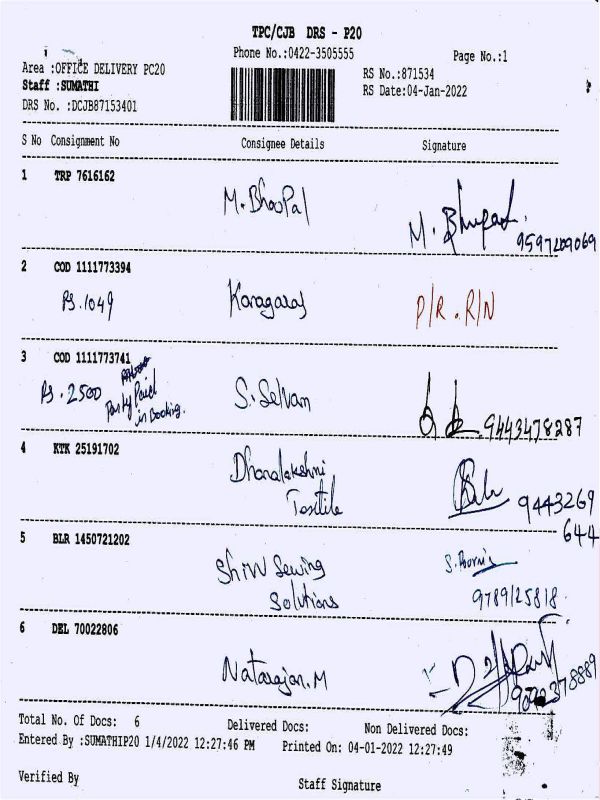 TPC/CJB DRS - P20
Phone No.:0422-3505555
Page No.:1
Area :OFFICE DELIVERY PC20
RS No.:871534
Staff :SUMATHI
RS Date:04-Jan-2022
DRS No. :DCJB87153401
S No Consignment No Consignee Details Signature
1 TRP 7616162
M. BhooPal
M. Bhupal
9597209069
2 COD 1111773394
Rs. 1049 Kanagaraj P/R. R/N
3 COD 1111773741
Rs. 2500 Party Paid in Booking.
S. Selvam
9443478287
4 KTK 25191702
Dhanalakshmi
Textile
9443269
644
5 BLR 1450721202
Shiv Sewing
Solutions
S. Poorni
9789125818
6 DEL 70022806
Natarajan. M
Total No. Of Docs: 6 Delivered Docs: Non Delivered Docs:
Entered By :SUMATHIP20 1/4/2022 12:27:46 PM Printed On: 04-01-2022 12:27:49
Verified By Staff Signature